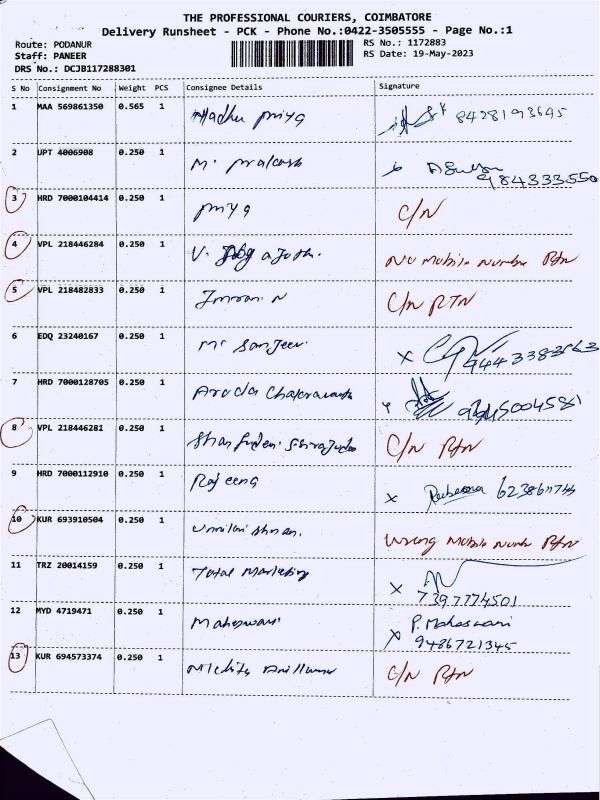 THE PROFESSIONAL COURIERS, COIMBATORE
Delivery Runsheet - PCK - Phone No.:0422-3505555 - Page No.:1
Route: PODANUR RS No.: 1172883
Staff: PANEER RS Date: 19-May-2023
DRS No.: DCJB117288301
S No Consignment No Weight PCS Consignee Details Signature
1 MAA 569861350 0.565 1 Madhu Priya 8428193645
2 UPT 4006908 0.250 1 M. Prakash 984333550
3 HRD 7000104414 0.250 1 Priya C/N
4 VPL 218446284 0.250 1 V. No Mobile Number RTN
5 VPL 218482833 0.250 1 Imran N C/N RTN
6 EDQ 23240167 0.250 1 Mr Sanjeev X
7 HRD 7000128705 0.250 1 Chakravarth
8 VPL 218446281 0.250 1 C/N RTN
9 HRD 7000112910 0.250 1 Rajeena X
10 KUR 693910504 0.250 1 Wrong Mobile Number RTN
11 TRZ 20014159 0.250 1 Total Marketing X 7397774501
12 MYD 4719471 0.250 1 Maheswari P. Maheswari
X 9486721345
13 KUR 694573374 0.250 1 C/N RTN